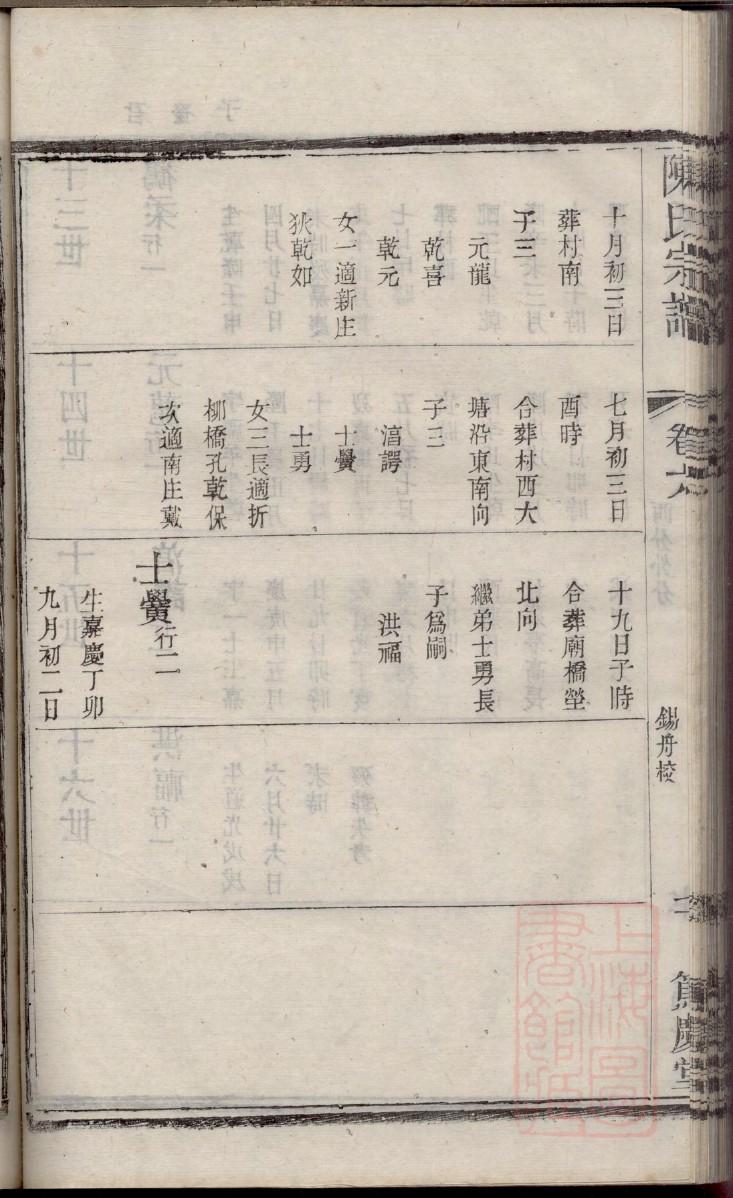 陳氏宗譜
卷六
錫丹校
二
篤慶堂
十月初三日
葬村南
子三
元龍
乾喜
乾元
女一適新庄
狄乾如
七月初三日
酉時
合葬村西大
塘沿東南向
子三
士黌
士勇
女三長適折
柳橋孔乾保
次適南庄戴
十九日子時
合葬廟橋塋
北向
繼弟士勇長
子爲嗣
洪福
士黌行二
生嘉慶丁卯
九月初二日
上海圖書館藏